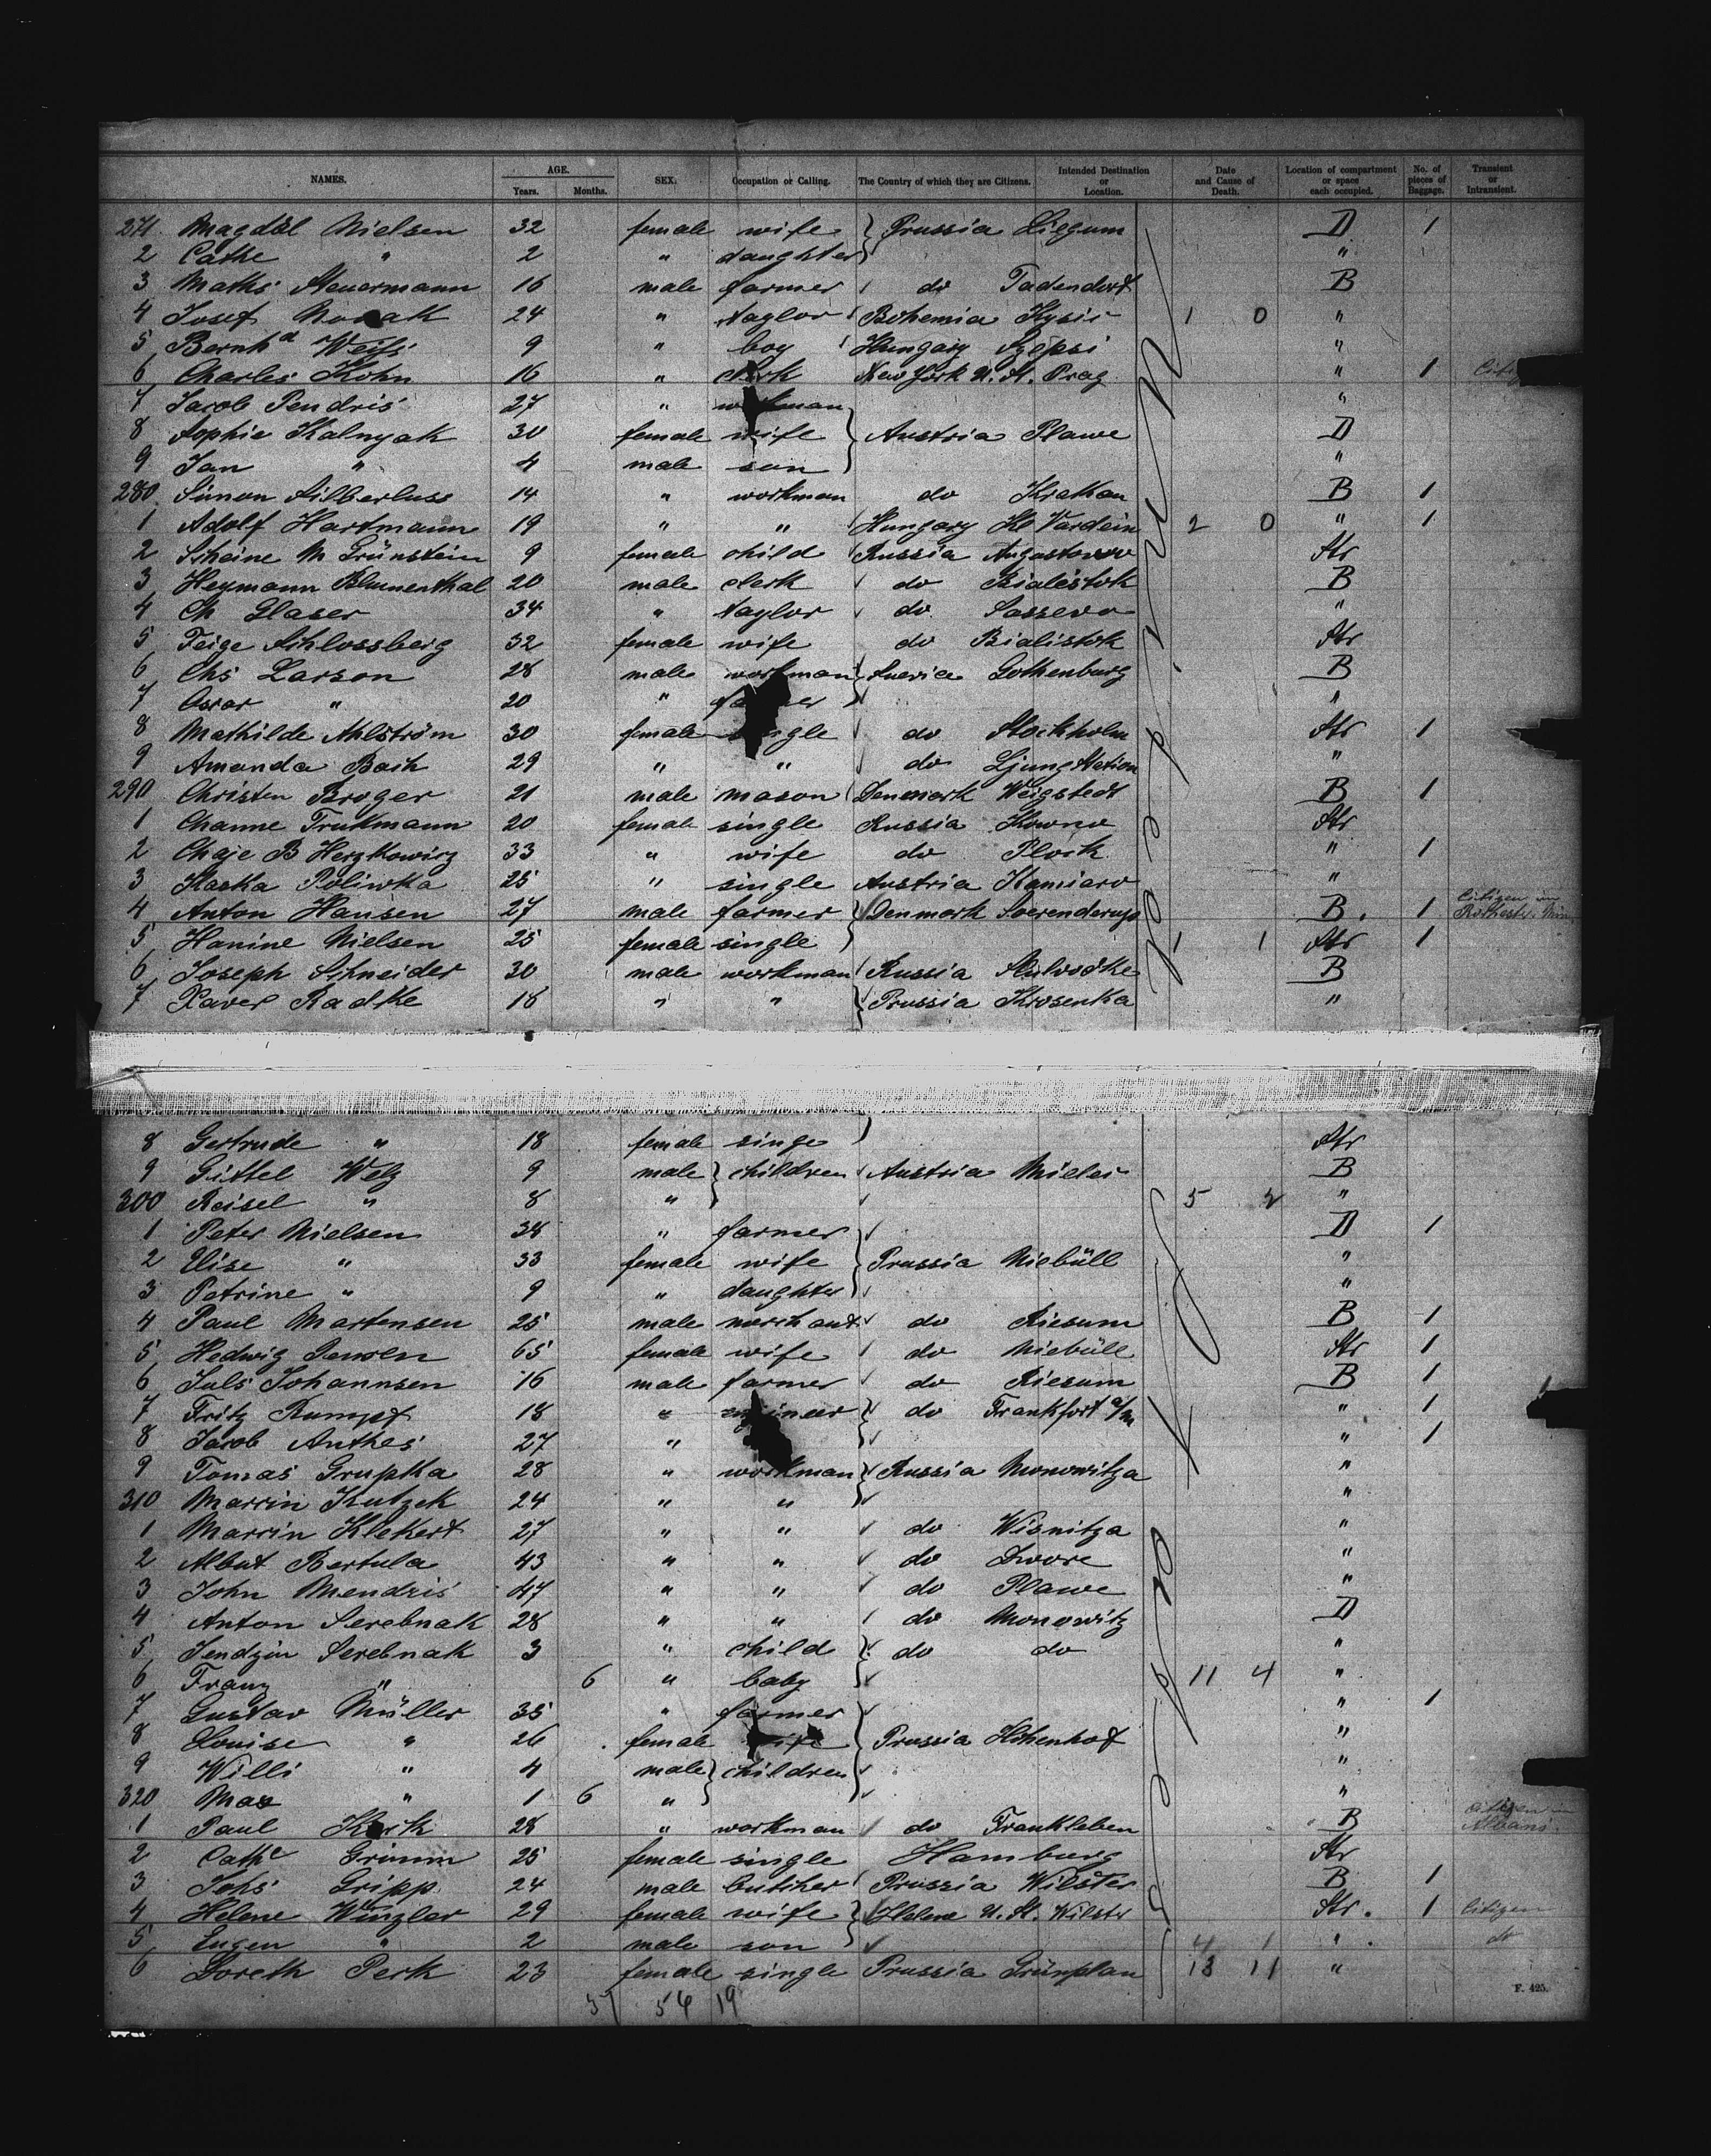 NAMES. AGE. Years. Months. SEX. Occupation or Calling. The Country of which they are Citizens. Intended Destination or Location. Date and Cause of Death. Location of compartment or space each occupied. No. of pieces of Baggage. Transient or Intransient.
271 Magdal Nielsen 32 female wife } Prussia Liegum D 1
2 Cathe " 2 " daughter } "
3 Maths Steuermann 16 male farmer do Tadendorf B
4 Josef 24 " taylor Bohemia Kysic 1 0 "
5 Bernhd Weifs 9 " boy Hungary Szepsi "
6 Charles Kohn 16 " clerk New York U. St. Prag " 1
7 Jacob Pendris 27 " workman "
8 Sophie Kalnyak 30 female wife } Austria Plawe D
9 Jan " 4 male son "
280 Simon Silberluss 14 " workman do Krakau B 1
1 Adolf Hartmann 19 " " Hungary Kl Vardein 2 0 " 1
2 Scheine M Grünstein 9 female child Russia Augustowo Str
3 Heymann Blumenthal 20 male clerk do Bialestok B
4 Ch Glaser 34 " taylor do Sosseva "
5 Feige Schlossberg 32 female wife do Bialistok Str
6 Chs Larson 28 male workman } Suevia Gothenburg B
7 Oscar " 20 " farmer "
8 Mathilde Ahlström 30 female single do Stockholm Str 1
9 Amanda Bock 29 " " do Ljung Station "
290 Christen Broger 21 male mason Denmark Weigstedt B 1
1 Channe Trukmann 20 female single Russia Kowno Str
2 Chaje B Herzkowicz 33 " wife do Plock " 1
3 Kaska Poliwka 25 " single Austria Kamiaro "
4 Anton Hansen 27 male farmer } Denmark Soerenderup B. 1 Citizen in
5 Hanine Nielsen 25 female single 1 1 Str 1
6 Joseph Schneider 30 male workman Russia B
7 Xaver Radtke 18 " " } Prussia Krosenka "
8 Gertrude " 18 female singe Str
9 Gittel Welz 9 male } children Austria Mielec B
300 Reisel " 8 " 5 2 "
1 Peter Nielsen 34 " farmer D 1
2 Elise " 33 female wife } Prussia Niebüll "
3 Petrine " 9 " daughter "
4 Paul Martensen 25 male merchant do Riesum B 1
5 Hedwig Jensen 65 female wife do Niebüll Str 1
6 Juls Johannsen 16 male farmer do Riesum B 1
7 Fritz Rumpf 18 " engineer } do Frankfort a/M " 1
8 Jacob Anthes 27 " " 1
9 Tomas Grupka 28 " workman } Russia Monowitza "
310 Marcin Kutzek 24 " " "
1 Marcin Klekert 27 " " do Wisnitza "
2 Albut Bertula 43 " " do Dwore "
3 John Mendris 47 " " do Plawe "
4 Anton Serebnak 28 " " do Monowitz D
5 Jendzin Serebnak 3 " child } do do "
6 Franz " 6 " baby 11 4 "
7 Gustav Müller 35 " farmer " 1
8 Louise " 26 female wife } Prussia Hohenhof "
9 Willi " 4 male } children "
320 Max " 1 6 " "
1 Paul 28 " workman do Frankleben B Citizen in Albany
2 Cathe Grimm 25 female single Hamburg Str
3 Johs Gripp 24 male butcher Prussia Wilster B 1
4 Helene Winzler 29 female wife } Helena U. St. Wilster Str. 1 Citizen
5 Eugen " 2 male son 4 1 " do
6 Doreth Perk 23 female single Prussia Grünplan 13 11 "
37 54 19
F. 425.